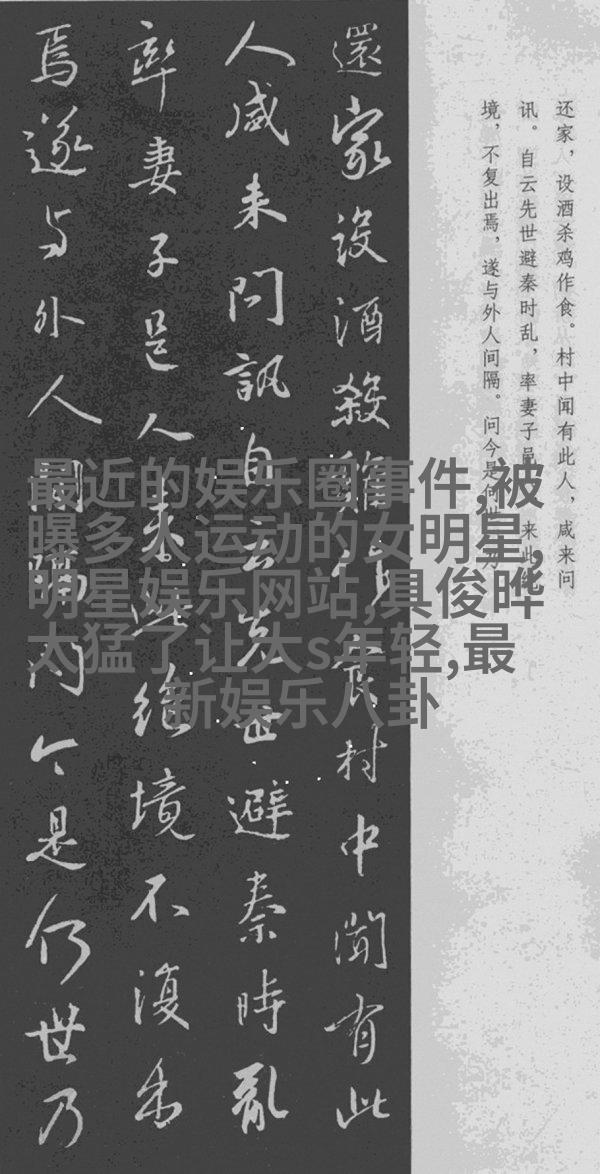 还家，设酒杀鸡作食。村中闻有此人，咸来问
讯。自云先世避秦时乱，率妻子邑来此绝
境，不复出焉，遂与外人间隔。问今是何世，乃
還家設酒殺雞作食村中聞有此
人咸来問訊自云先世避秦時亂
率妻子邑人来此绝境不復出
焉遂与外人間隔問今是何世乃
最近的娱乐圈事件,被
曝多人运动的女明星,
明星娱乐网站,具俊晔
太猛了让大s年轻,最
新娱乐八卦